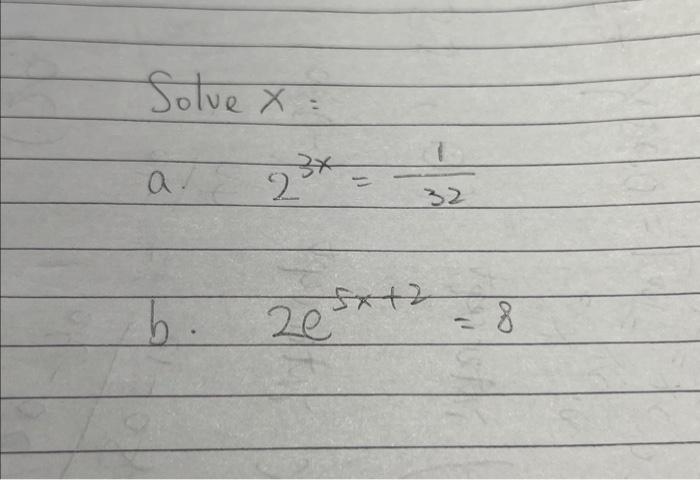 Solve x :
a. 2^{3x} = \frac{1}{32}
b. 2e^{5x+2} = 8